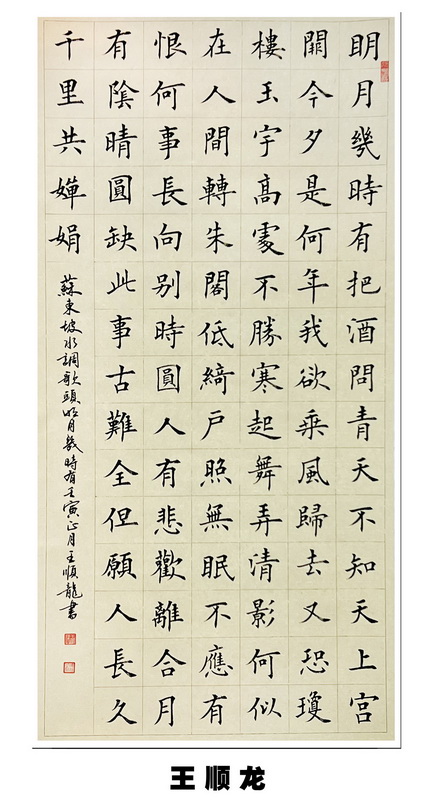 明月幾時有把酒問青天不知天上宮
闕今夕是何年我欲乘風歸去又恐瓊
樓玉宇高處不勝寒起舞弄清影何似
在人間轉朱閣低綺戶照無眠不應有
恨何事長向别時圓人有悲歡離合月
有陰晴圓缺此事古難全但願人長久
千里共嬋娟
蘇東坡水調歌頭明月幾時有壬寅正月王順龍書
王顺龙